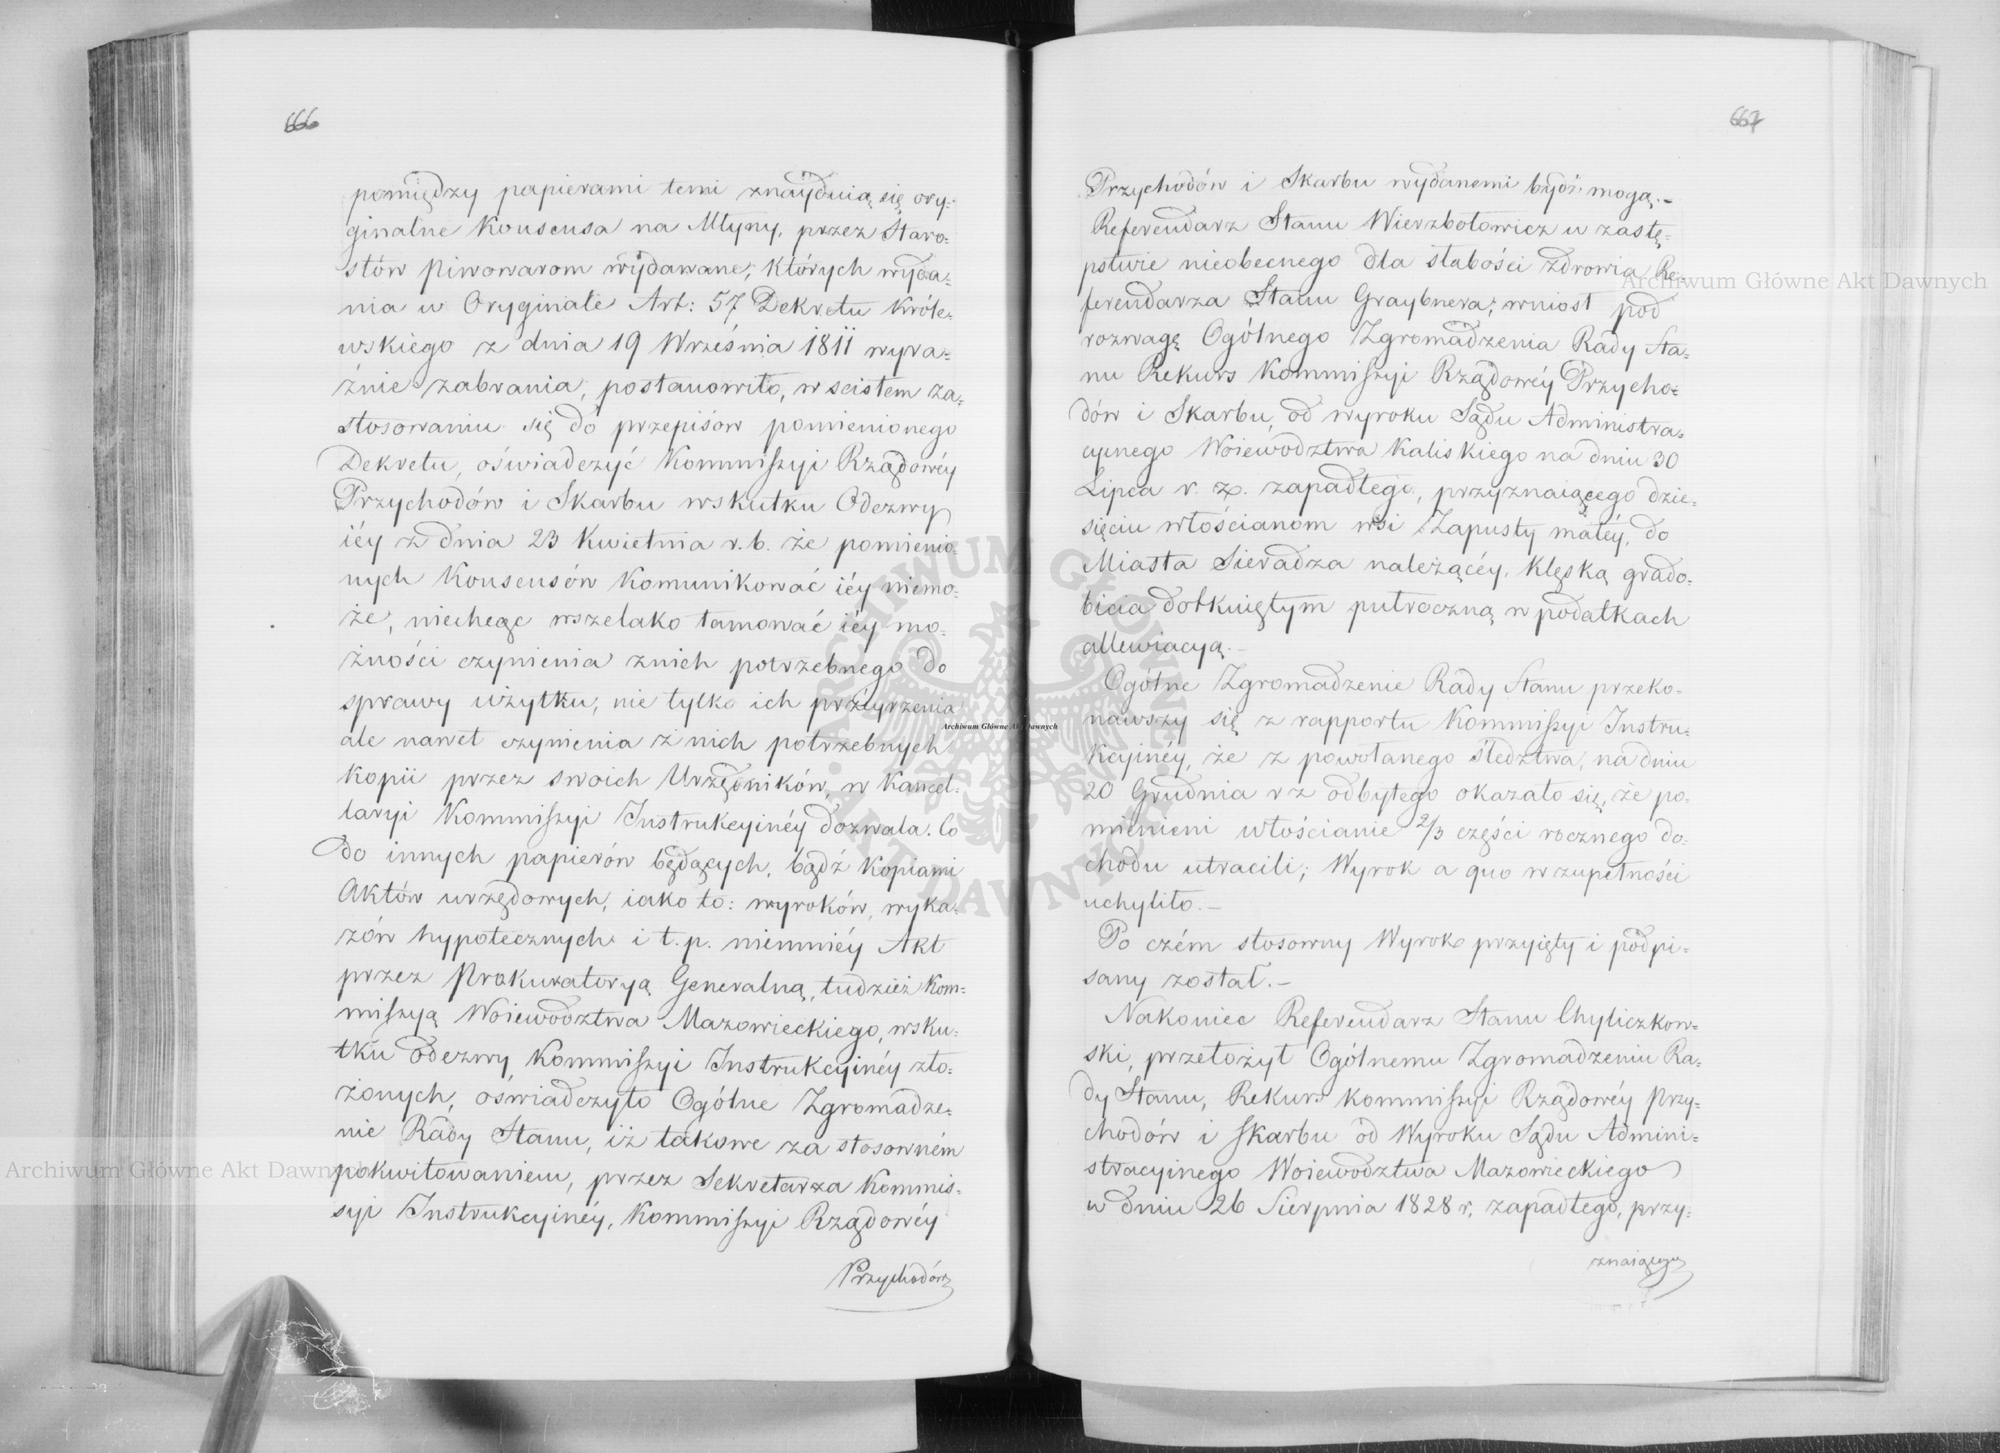 666
pomiędzy papierami temi znayduią się ory-
ginalne Konsensa na Młyny, przez Staro-
stów Piwowarom wydawane, których wyda-
nia w Oryginale Art: 57 Dekretu Króle-
wskiego z dnia 19 Września 1811 wyra-
źnie zabrania, postanowiło, w scisłem za-
stosowaniu się do przepisów pomienionego
Dekretu, oświadczyć Kommissyi Rządowéy
Przychodów i Skarbu wskutku Odezwy
iéy z dnia 23 Kwietnia r. b. że pomienio-
nych Konsensów Komunikować iéy niemo-
że, niechcąc wszelako tamować iéy mo-
żności czynienia znich potrzebnego do
sprawy użytku, nie tylko ich przéyrzenia
ale nawet czynienia z nich potrzebnych
Kopii przez swoich Urzędników, w Kancel-
laryi Kommissyi Instrukcyinéy dozwala. Co
do innych papierów będących, bądź Kopiami
Aktów urzędowych, iako to: wyroków, wyka-
zów hypotecznych i t. p. niemniéy Akt
przez Prokuratoryą Generalną, tudzież Kom-
missyą Woiewodztwa Mazowieckiego, wsku-
tku odezwy Kommissyi Instrukcyinéy zło-
żonych, oświadczyło Ogólne Zgromadze-
nie Rady Stanu, iż takowe za stosowném
pokwitowaniem, przez Sekretarza Kommis-
syi Instrukcyinéy, Kommissyi Rządowéy
Przychodów
667
Przychodów i Skarbu wydanemi bydź mogą.-
Referendarz Stanu Wierzbołowicz w zastę-
pstwie nieobecnego dla słabości zdrowia Re-
ferendarza Stanu Graybnera, wniosł pod
rozwagę Ogólnego Zgromadzenia Rady Sta-
nu Rekurs Kommissyi Rządowéy Przycho-
dów i Skarbu, od wyroku Sądu Administra-
cyinego Woiewodztwa Kaliskiego na dniu 30
Lipca r. z. zapadłego, przyznaiącego dzie-
sięciu włościanom wsi Zapusty małéy, do
Miasta Sieradza należącéy, Klęską grado-
bicia dotkniętym półroczną w podatkach
allewiacyą.-
Ogólne Zgromadzenie Rady Stanu przeko-
nawszy się z rapportu Kommissyi Instru-
kcyinéy, że z powołanego śledztwa, na dniu
20 Grudnia r z odbytego okazało się, że po-
mienieni włościanie 2/3 części rocznego do-
chodu utracili; Wyrok a quo w zupełności
uchyliło.-
Po czém stosowny Wyrok przyięty i podpi-
sany został.-
Nakoniec Referendarz Stanu Chyliczkow-
ski, przełożył Ogólnemu Zgromadzeniu Ra-
dy Stanu, Rekurs Kommissyi Rządowéy Przy-
chodów i Skarbu od Wyroku Sądu Admini-
stracyinego Woiewodztwa Mazowieckiego
w dniu 26 Sierpnia 1828 r. zapadłego, przy-
znaiącego
Archiwum Główne Akt Dawnych
Archiwum Główne Akt Dawnych
Archiwum Główne Akt Dawnych
ARCHIWUM GŁÓWNE AKT DAWNYCH